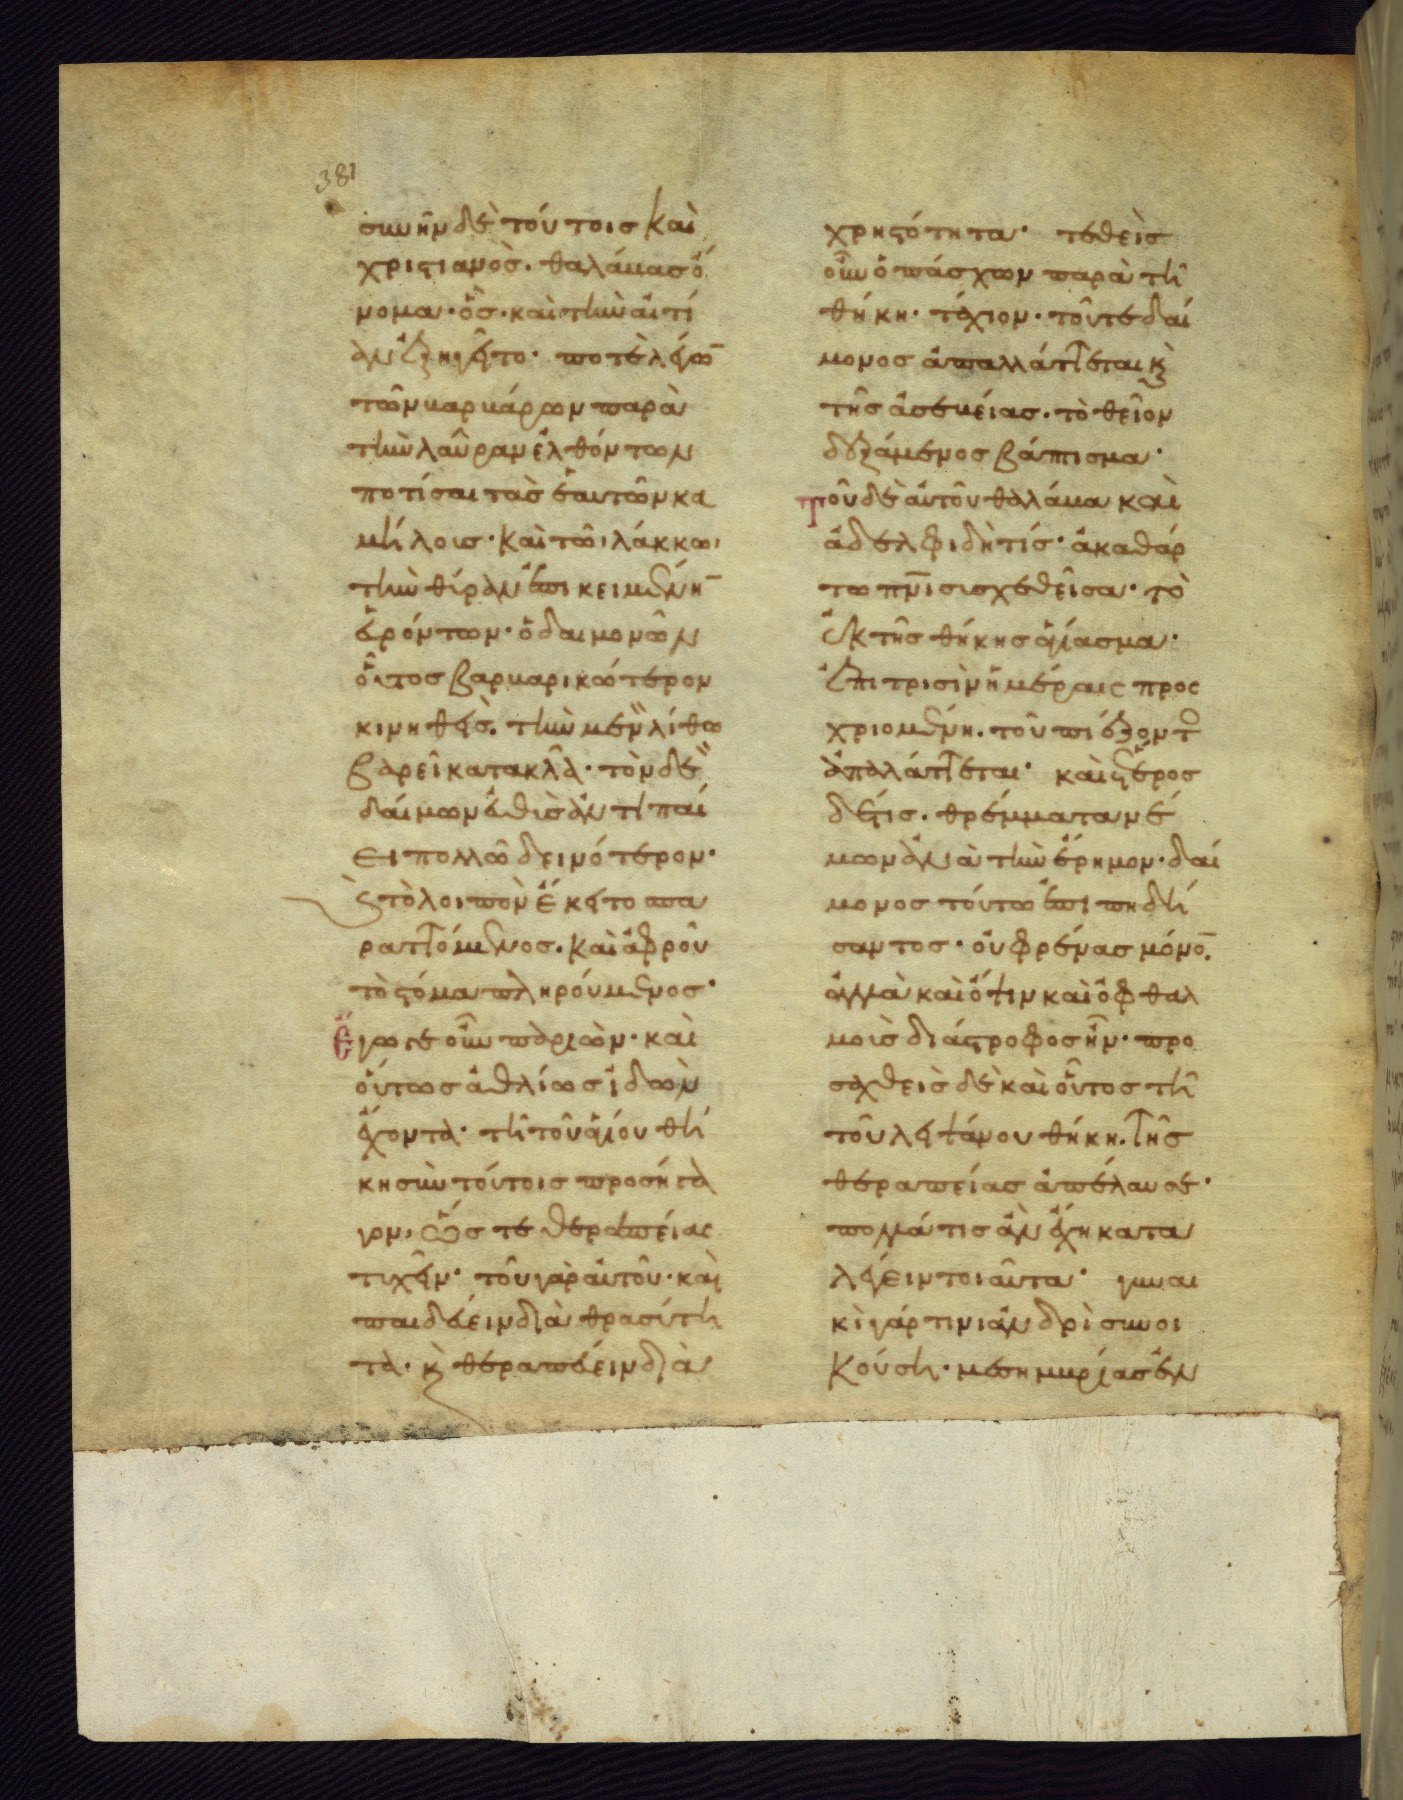 381
συνῆν δὲ τούτοις καὶ
χριστιανὸς. θαλάμας ὄ
νομα· ὃς· καὶ τὴν αἰτί
αν ἐξηγεῖτο· ποτὲ λέγω̅
τῶν βαρβάρων παρὰ
τὴν λαῦραν ἐλθόντων
ποτίσαι τὰς ἑαυτῶν κα
μήλοις· καὶ τῶι λάκκωι
τὴν θύραν ἐπικειμένη̅
εὑρόντων· ὁ δαιμονῶν
οὗτος βαρβαρικώτερον
κινηθεὶς. τὴν μὲν λίθω
βαρεῖ κατακλᾶ· τὸν δὲ
δαίμων εὐθὺς ἀντιπαί
ει πολλῶ δεινότερον·
ϗ τὸλοιπὸν ἔκειτο σπα
ραττόμενος. καὶ ἀφροῦ
τὸ στόμα πληρούμενος·
Ἔγωγε οὖν παριὼν· καὶ
οὕτως ἀθλίως ἰδὼν
ἔχοντα· τῆ τοῦ ἁγίου θή
κη σὺν τούτοις προσήγα
γον, ὥστε θεραπείας
τυχεῖν· τοῦ γὰρ αὐτοῦ· καὶ
παιδεύειν διὰ θρασύτη
τα· ϗ θεραπεύειν διὰ
χρηστότητα· τεθεὶς
οὖν ὁ πάσχων παρὰ τῆ
θήκη· τάχιον· τοῦτε δαί
μονος ἀπαλλάττεται ϗ
τῆς ἀσεβείας. τὸ θεῖον
δεξάμενος βάπτισμα·
Τοῦ δὲ αὐτοῦ θαλάμα καὶ
ἀδελφιδῆ τίς· ἀκαθάρ
τω πν̅ι συσχεθεῖσα· τὸ
ἐκ τῆς θήκης ἁγίασμα·
ἐπι τρισὶν ἡμέραις προς
χριομένη. τοῦ πιέζοντο
ἀπαλάττεται· καὶ ἕτερος
δέ τις. θρέμματα νέ
μων ἀνὰ τὴν ἔρημον· δαί
μονος τούτω ἐπιπηδή
σαντος· οὐ φρένας μόνο̅.
ἀλλὰ καὶ ὄψιν καὶ ὀφθαλ
μοὺς διάστροφος ἦν· προ
σαχθεὶς δὲ καὶ οὗτος τῆ
τοῦ λειψάνου θήκη. τῆς
θεραπείας ἀπέλαυσε·
πολλά τις ἂν ἔχη κατα
λέγειν τοιαῦτα· γυναι
κὶ γάρ τινι ἀνδρὶ συνοι
κούση· μεσημβρίας ἐν